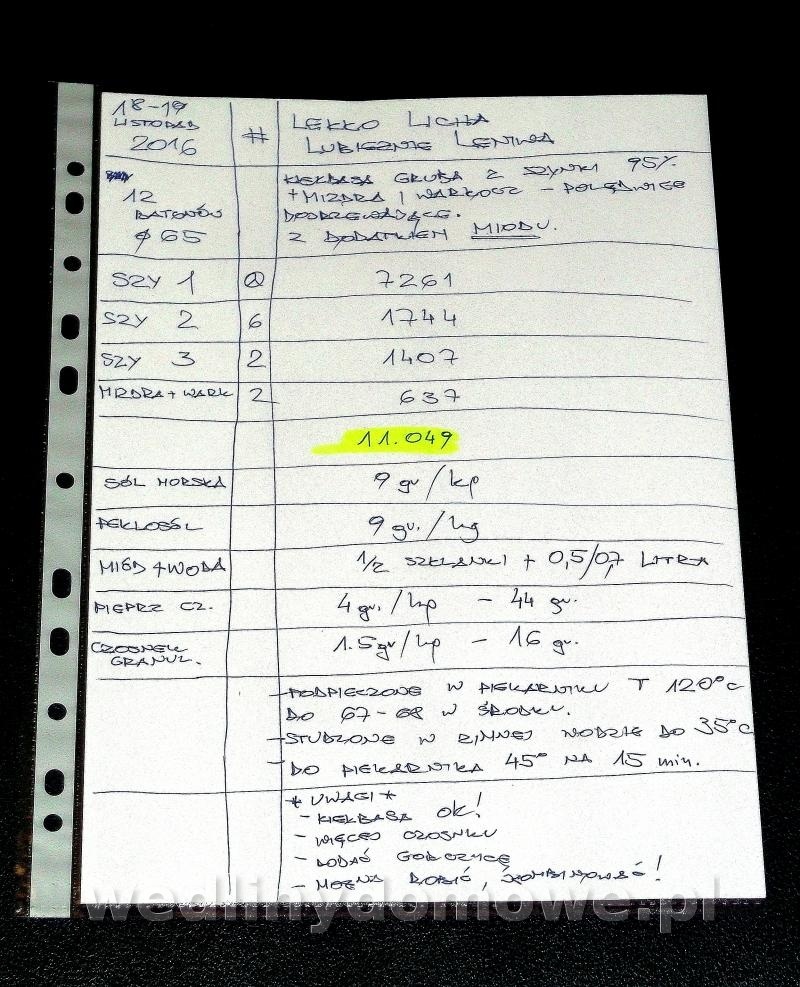 18-19
LISTOPAD
2016
#
LEKKO LICHA
LUBIEZNIE LENIWA
12
BATONÓW
φ 65
KIEŁBASA GRUBA Z SZYNKI 95%
+ MIZDRA I WARKOCZ - POLĘDWICE
DOBRZEWAJĄCE.
Z DODATKIEM MIODU.
SZY 1 @ 7261
SZY 2 6 1744
SZY 3 2 1407
MIZDRA + WARK 2 637
11.049
SÓL MORSKA 9 gr/kg
PEKLOSÓL 9 gr./kg
MIÓD + WODA 1/2 SZKLANKI + 0,5/0,7 LITRA
PIEPRZ CZ. 4 gr./kg - 44 gr.
CZOSNEK 1.5gr/kg - 16 gr.
GRANUL.
- PODPIECZONE W PIEKARNIKU T 120°C
DO 67-68 W ŚRODKU.
- STUDZONE W ZIMNEJ WODZIE DO 35°C
- DO PIEKARNIKA 45° NA 15 min.
* UWAGI *
- KIEŁBASA OK!
- WIĘCEJ CZOSNKU
- DODAĆ GORCZYCĘ
- MOŻNA ROBIĆ, KOMBINOWAĆ!
wedlinydomowe.pl